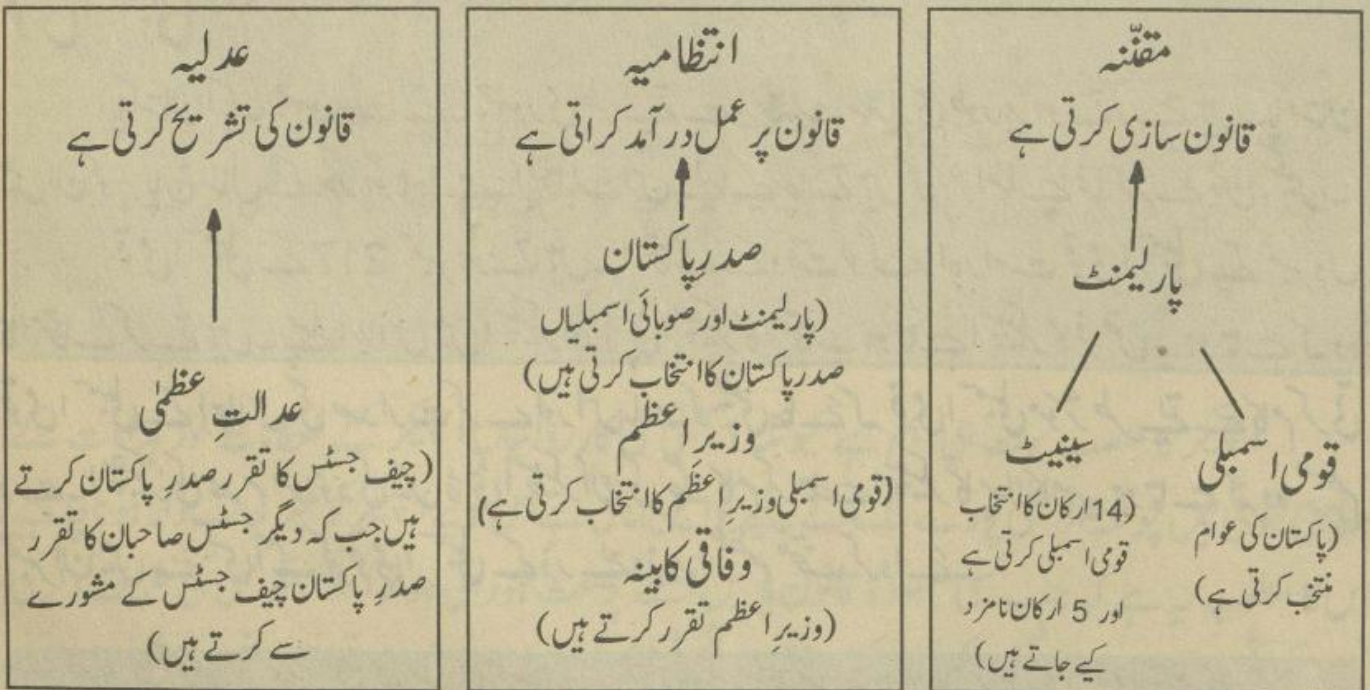 مقنّنہ
قانون سازی کرتی ہے
پارلیمنٹ
قومی اسمبلی
(پاکستان کی عوام
منتخب کرتی ہے)
سینیٹ
(14 ارکان کا انتخاب
قومی اسمبلی کرتی ہے
اور 5 ارکان نامزد
کیے جاتے ہیں)
انتظامیہ
قانون پر عمل در آمد کراتی ہے
صدرِ پاکستان
(پارلیمنٹ اور صوبائی اسمبلیاں
صدر پاکستان کا انتخاب کرتی ہیں)
وزیرِ اعظم
(قومی اسمبلی وزیرِ اعظم کا انتخاب کرتی ہے)
وفاقی کابینہ
(وزیرِ اعظم تقرر کرتے ہیں)
عدلیہ
قانون کی تشریح کرتی ہے
عدالتِ عظمیٰ
(چیف جسٹس کا تقرر صدرِ پاکستان کرتے
ہیں جب کہ دیگر جسٹس صاحبان کا تقرر
صدرِ پاکستان چیف جسٹس کے مشورے
سے کرتے ہیں)